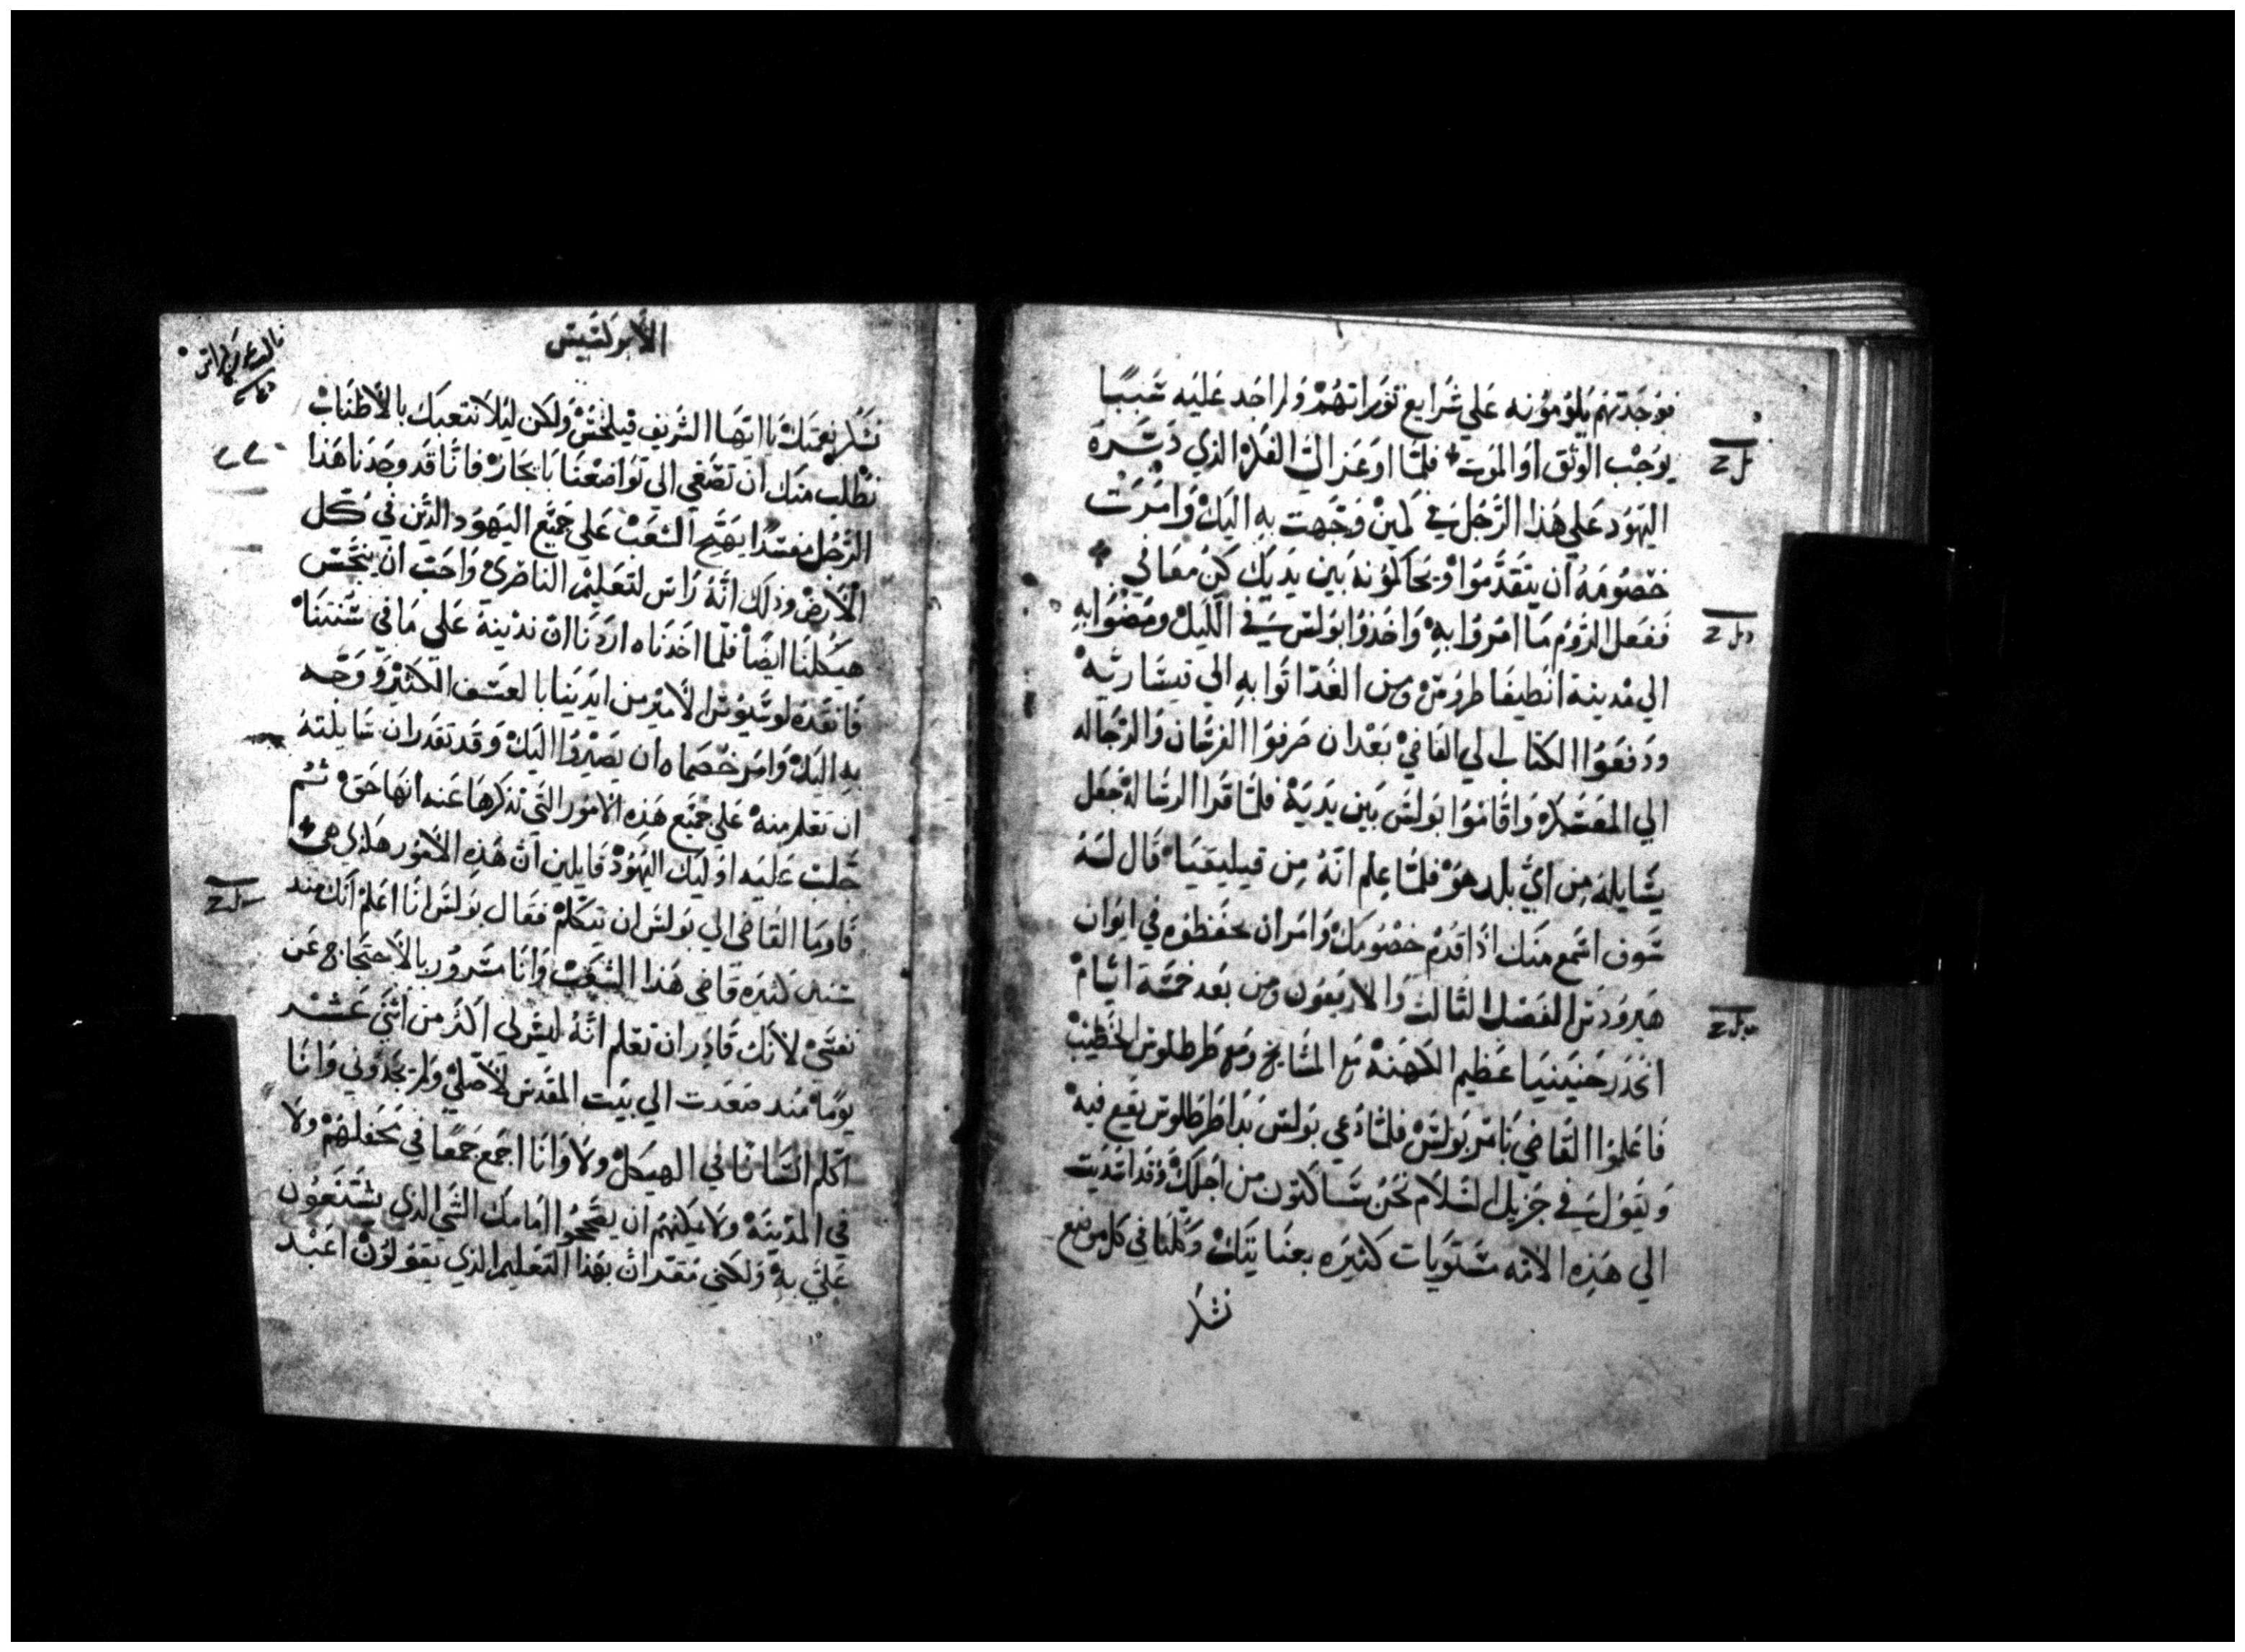 فوجدتهم يلومونه علي شرايع توراتهم ولم اجد عليه سببًا
يوجب الوثق او الموت فلما اوعز الي الفكر الذي دسره
اليهود علي هذا الرجل في كمين وجهت به اليك وامرت
خصومه ان يتقدموا ويحاكمونه بين يديك كن معافي
ففعل الروم ما امروا به واخذوا بولس في الليل ومضوا به
الي مدينة انطيفاطروس ومن الغد اتوا به الي قيسارية
ودفعوا الكتاب الي القاضي بعد ان صرفوا الفرسان والرجاله
الي المعسكر واقاموا بولس بين يديه فلما قرا الرساله جعل
يسايله من اي بلد هو فلما علم انه من قيليقيا قال له
سوف اسمع منك اذا قدم خصومك وامر ان يحفظوه في ايوان
هيرودس الفصل الثالث والاربعون ومن بعد خمسة ايام
انحدر حنينيا عظيم الكهنة مع المشايخ ومع طرطلوس الخطيب
فاعلموا القاضي بامر بولس فلما دعي بولس بدا طرطلوس يقع فيه
ويقول في جزيل السلام نحن ساكنون من اجلك وقد اسديت
الي هذه الامه مستويات كثيره بعنايتك وكلنا في كل موضع
نشكر
الابركسيس
نشكر نعمتك يا ايها الشريف فيلخس ولكن ليلا نتعبك بالاطناب
نطلب منك ان تصغي الي تواضعنا بايجاز فانا قد وجدنا هذا
الرجل مفسدا يهيج الشعب علي جميع اليهود الذين في كل
الارض وذلك انه راس لتعليم الناصري واحب ان ينجس
هيكلنا ايضا فلما اخذناه اردنا ان ندينه علي ما في سنتنا
فانقذه لوسيوس الامير من ايدينا بالعسف الكثير ووجه
به اليك وامر خصماه ان يصيروا اليك وقد تقدر ان سايلته
ان تعلم منه علي جميع هذه الامور التي نذكرها عنه انها حق ثم
جلبت عليه اوليك اليهود قايلين ان هذه الامور هكذي هي
فاوما القاضي الي بولس ان يتكلم فقال بولس انا اعلم انك منذ
سنين كثيره قاضي هذا الشعب وانا مسرور بالاحتجاج عن
نفسي لانك قادر ان تعلم انه ليس لي اكثر من اثني عشر
يوما منذ صعدت الي بيت المقدس لاصلي ولم يجدوني وانا
اكلم انسانا في الهيكل ولا وانا اجمع جمعا في محفلهم ولا
في المدينة ولا يمكنهم ان يصححوا امامك الشي الذي يشنعون
علي به ولكني مقر ان بهذا التعليم الذي يقولون اعبد